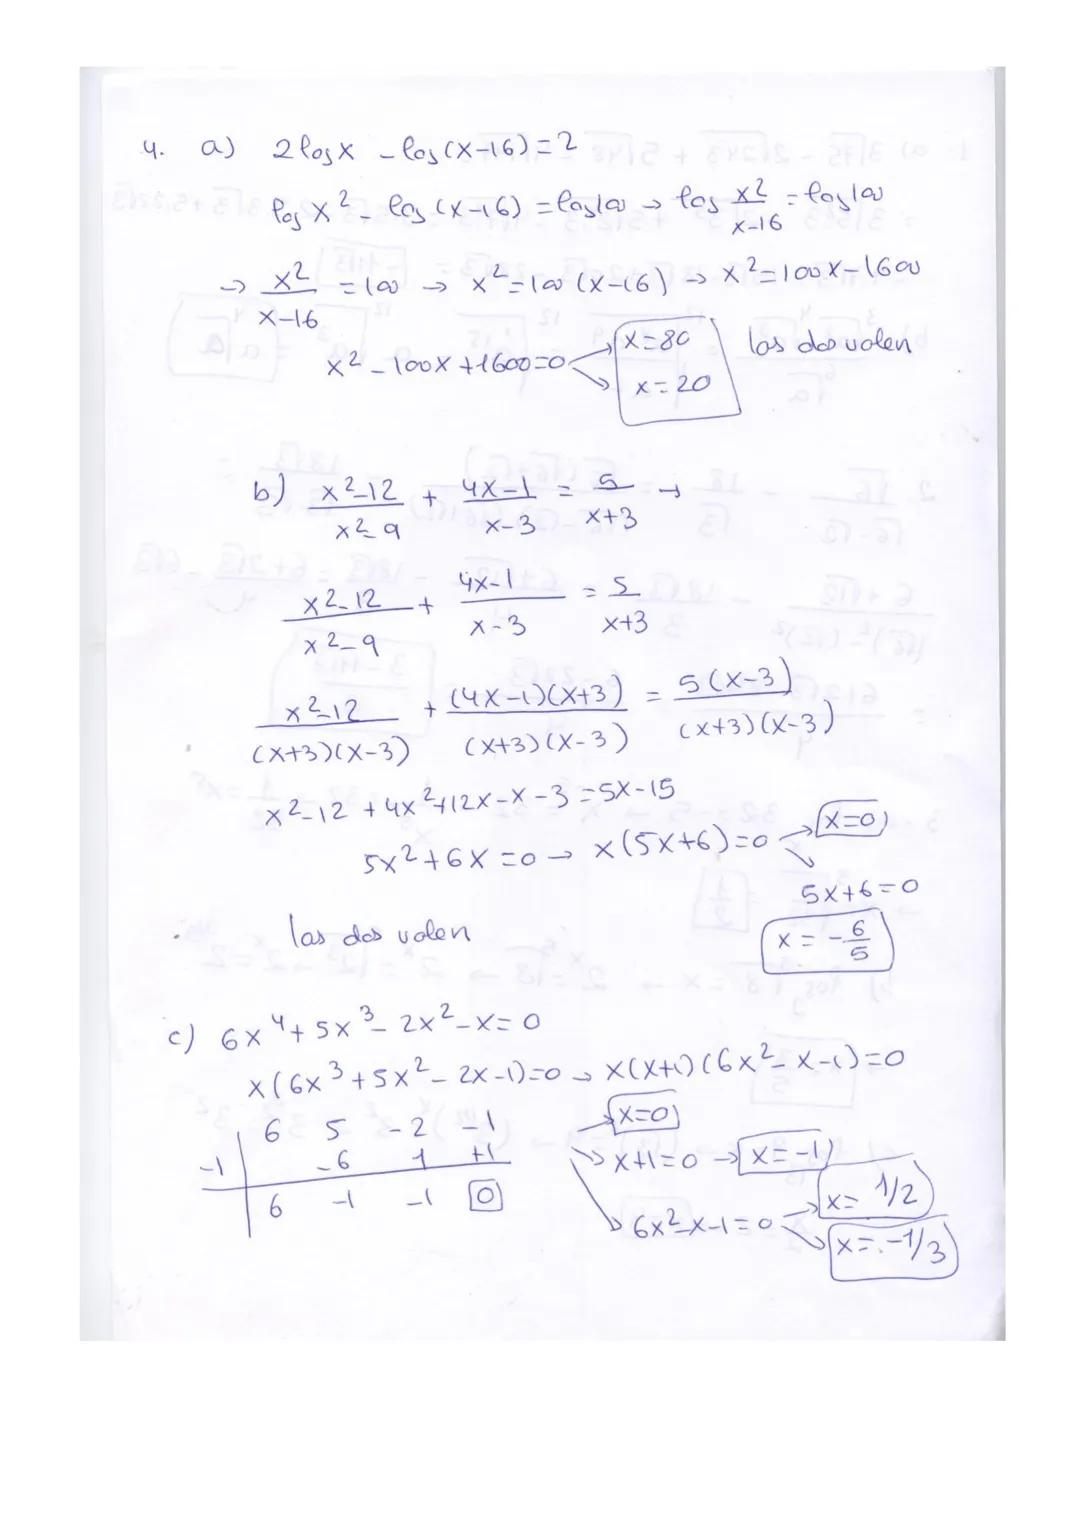 4. a) 2 log x - log (x-16) = 2
log x² - log (x-16) = log 100 → log x²/(x-16) = log 100
→ x²/(x-16) = 100 → x² = 100 (x-16) → x² = 100x - 1600
x² - 100x + 1600 = 0 x = 80 las dos valen
x = 20
b) (x²-12)/(x²-9) + (4x-1)/(x-3) = 5/(x+3) →
(x²-12)/(x²-9) + (4x-1)/(x-3) = 5/(x+3)
(x²-12)/((x+3)(x-3)) + ((4x-1)(x+3))/((x+3)(x-3)) = (5(x-3))/((x+3)(x-3))
x²-12 + 4x²+12x-x-3 = 5x-15
5x²+6x = 0 → x(5x+6) = 0 x = 0
5x+6 = 0
las dos valen x = -6/5
c) 6x⁴ + 5x³ - 2x² - x = 0
x(6x³ + 5x² - 2x - 1) = 0 → x(x+1)(6x² - x - 1) = 0
6 5 -2 -1 x = 0
-1 -6 1 +1 x+1 = 0 → x = -1
6 -1 -1 0 6x²-x-1 = 0 x = 1/2
x = -1/3